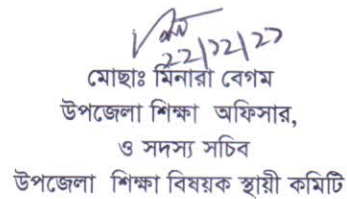 22/12/23
মোছাঃ মিনারা বেগম
উপজেলা শিক্ষা অফিসার,
ও সদস্য সচিব
উপজেলা শিক্ষা বিষয়ক স্থায়ী কমিটি